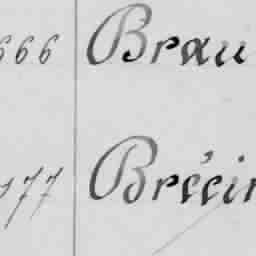 666 Brau
177 Brécin